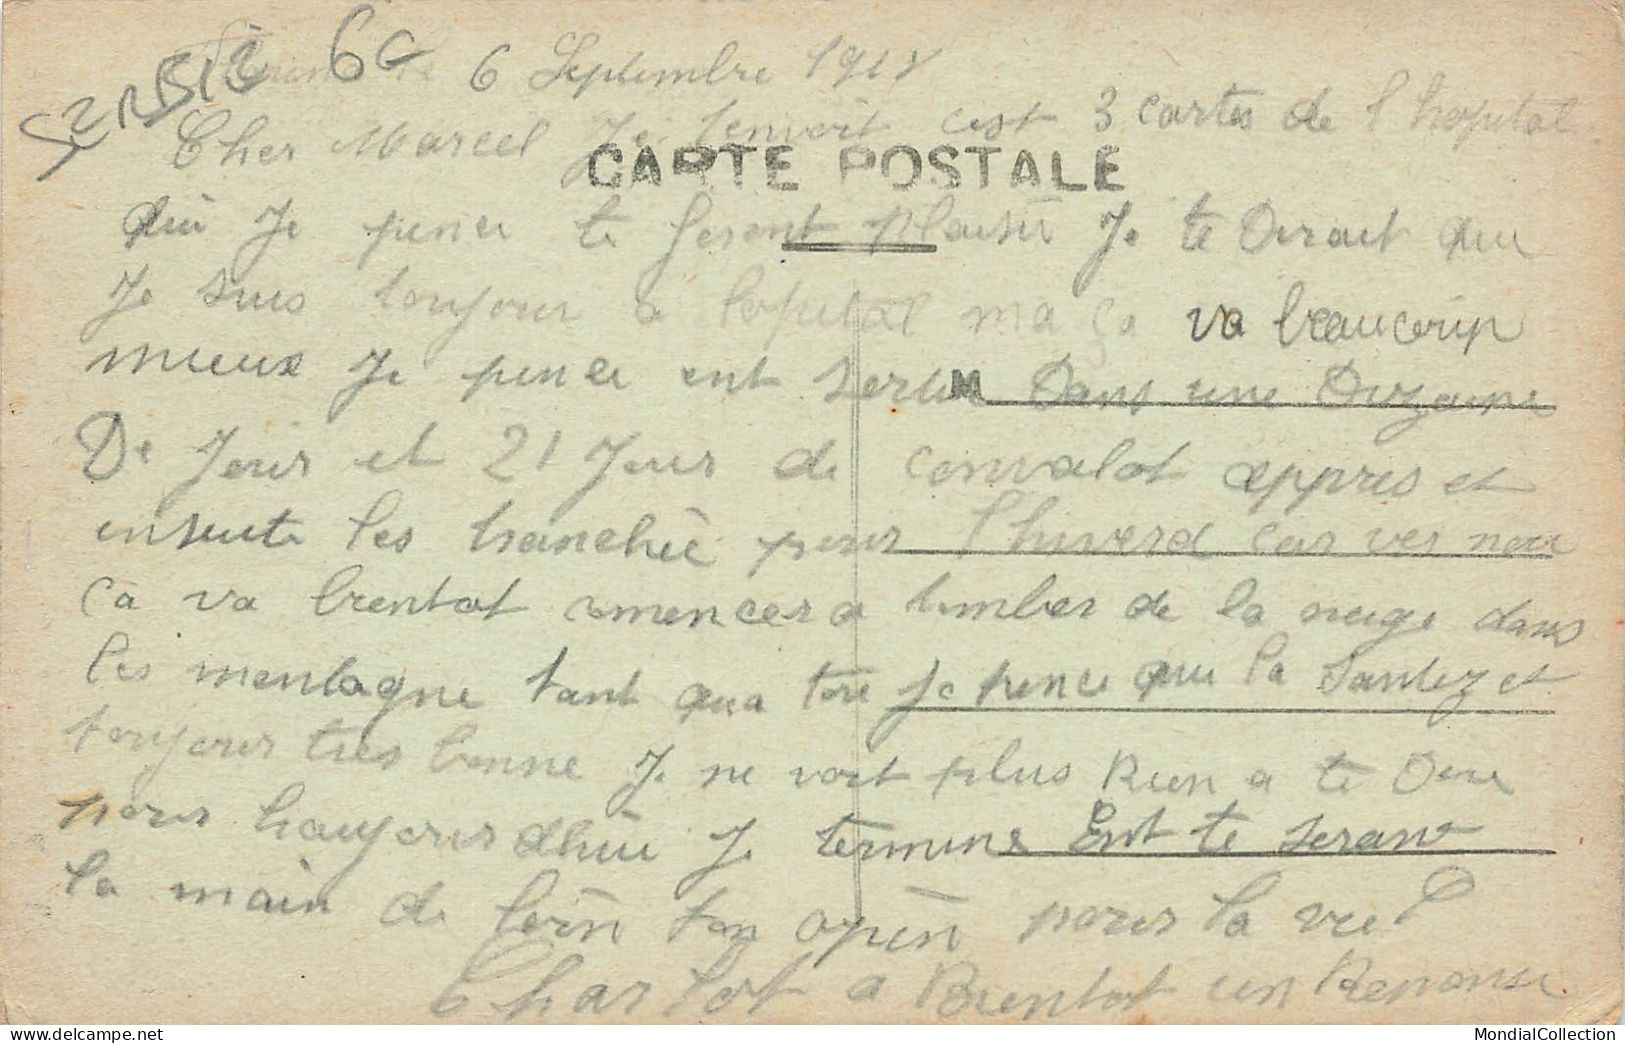 SERBIE 60
6 Septembre 1918
Cher Marcel Je tenvoit cest 3 cartes de l hopital
CARTE POSTALE
qui Je pence te feront plaisir Je te Dirait que
Je suis toujour a lopital ma ça va beaucoup
mieux Je pence ent sertir Dans une Dizaine
M
De Jour et 21 Jour de convalot appres et
ensuite les tranchèe pour l'hiverd car ver nou
ça va bientot comencer a tomber de la neige dans
les montagne tant qua toie Je pence que la santez et
toujours très bonne Je ne voit plus Rien a te Dire
pour haujourdhui Je termine Ent te serant
la main de loin ton opin pour la vie
Charlot a Bientot un Reponse
MondialCollection